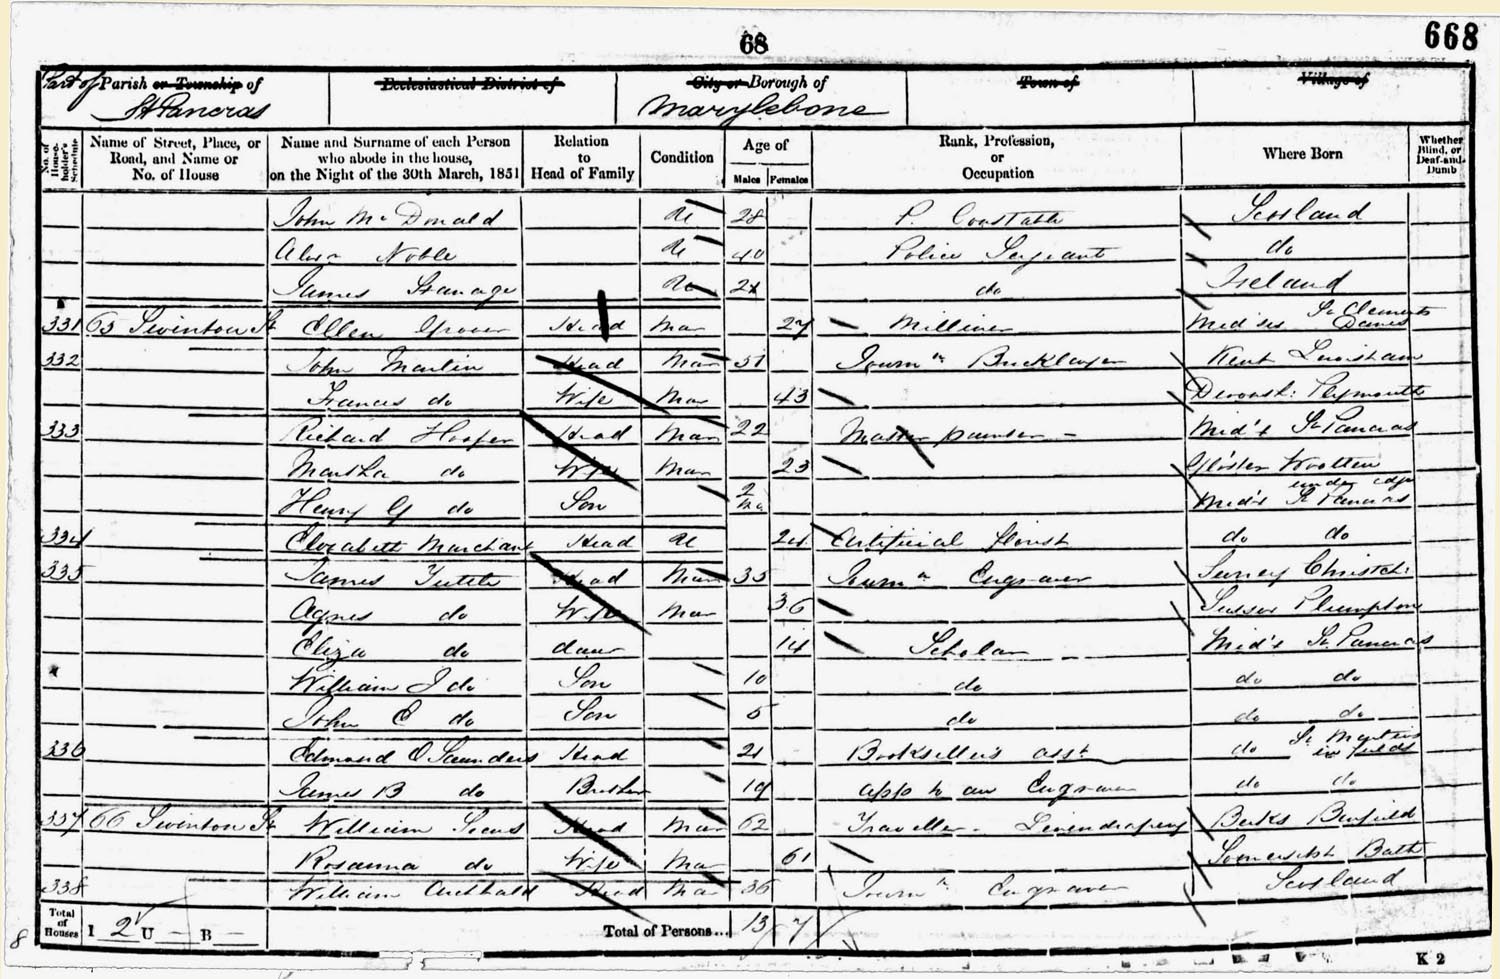 68
668
Part of Parish or Township of
St Pancras
Ecclesiastical District of
City or Borough of
Marylebone
Town of
Village of
No. of Householder's Schedule
Name of Street, Place, or Road, and Name or No. of House
Name and Surname of each Person who abode in the house, on the Night of the 30th March, 1851
Relation to Head of Family
Condition
Age of
Males Females
Rank, Profession, or Occupation
Where Born
Whether Blind, or Deaf-and-Dumb
John McDonald U 28 P. Constable Scotland
Noble U 40 Police Sergeant do
James U do Ireland
331 65 Swinton St Ellen Head Mar 27 Milliner Mid'sex St Clements Danes
332 John Martin Head Mar 51 Journ Bricklayer Kent Lewisham
Frances do Wife Mar 43 Devonsh: Plymouth
333 Richard Hooper Head Mar 22 Master painter Mid's St Pancras
Martha do Wife Mar 23 Gloster Wootten under edge
Henry G do Son 2 mo Mid's St Pancras
334 Elizabeth Marchant Head U 24 Artificial florist do do
335 James Head Mar 35 Journ Engraver Surrey Christch:
Agnes do Wife Mar 36 Sussex Plumpton
Eliza do daur 14 Scholar Mid's St Pancras
William J do Son 10 do do do
John E do Son 5 do do do
336 Edmond O Saunders Head 21 Bookseller's asst do St Martins in fields
James B do Brother 19 app to an Engraver do do
337 66 Swinton St William Head Mar 62 Traveller - Linendrapery Berks Binfield
Rosanna do Wife Mar 61 Somersetsh Bath
338 William Archbald Head Mar 36 Journ Engraver Scotland
Total of Houses I 2 U — B —
Total of Persons... 13 7
8
K 2